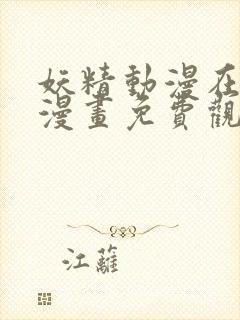 妖精動漫在
漫畫免費觀
江蘺